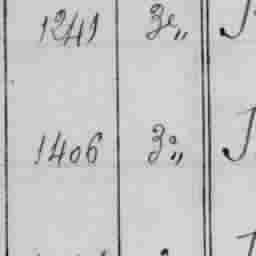 1241 3e„ J
1406 3o„ J